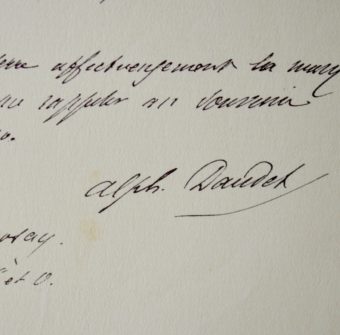 affectueusement la main
me rappeler au souvenir
Alph. Daudet
et O.